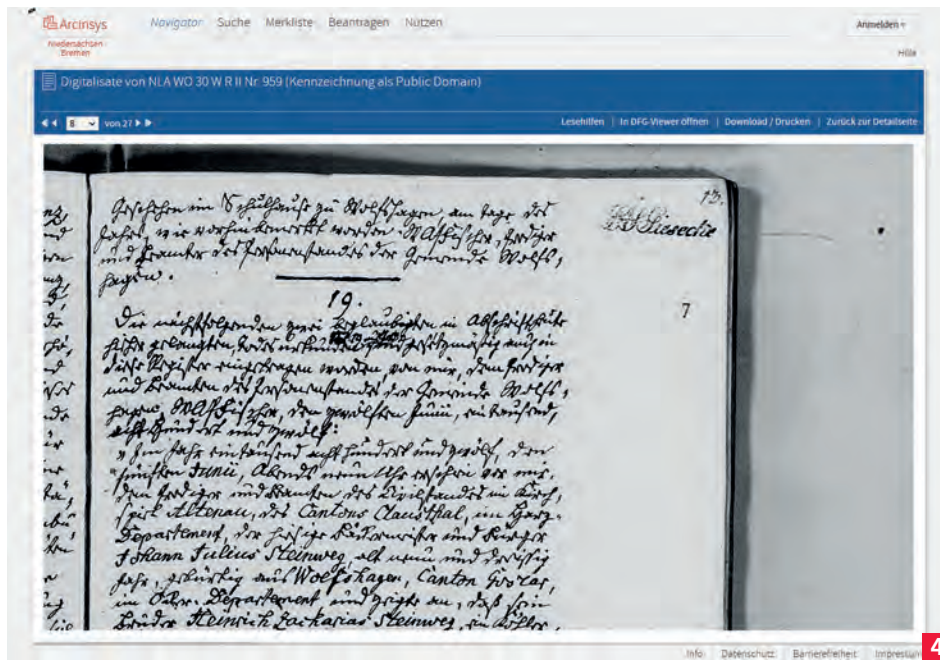 Arcinsys
Niedersachsen
Bremen
Navigator Suche Merkliste Beantragen Nutzen
Anmelden
Hilfe
Digitalisate von NLA WO 30 W R II Nr. 959 (Kennzeichnung als Public Domain)
8 von 27
Lesehilfen | In DFG-Viewer öffnen | Download / Drucken | Zurück zur Detailseite
13.
Geschehen im Schulhause zu Wolfshagen, am Tage des
Jahrs, wie vorhin bemerkt worden. Prediger
und Beamter des Personenstandes der Gemeinde Wolfs,
hagen.
Giesecke
19.
7
Die nächstfolgenden zwei beglaubigten in Abschrift
gelangten, gesetzmäßig auch in
diese Register eingetragen worden von mir, dem Prediger
und Beamten des Personenstandes der Gemeinde Wolfs,
hagen, den zwölften Junii, eintausend,
acht hundert und zwölf:
„Im Jahr eintausend acht hundert und zwölf, den
fünften Junii, Abends neun Uhr erschien vor mir,
dem Prediger und Beamten des Civilstandes im Kirch,
spiel Altenau, des Cantons Clausthal, im Harz-
Departement, der hiesige und Bürger
Johann Julius Steinweg, alt neun und dreißig
Jahr, gebürtig aus Wolfshagen, Canton Goslar,
im Oker-Departement und zeigte an, daß sein
Bruder Heinrich Zacharias Steinweg, ein Köhler,
Info Datenschutz Barrierefreiheit Impressum
4